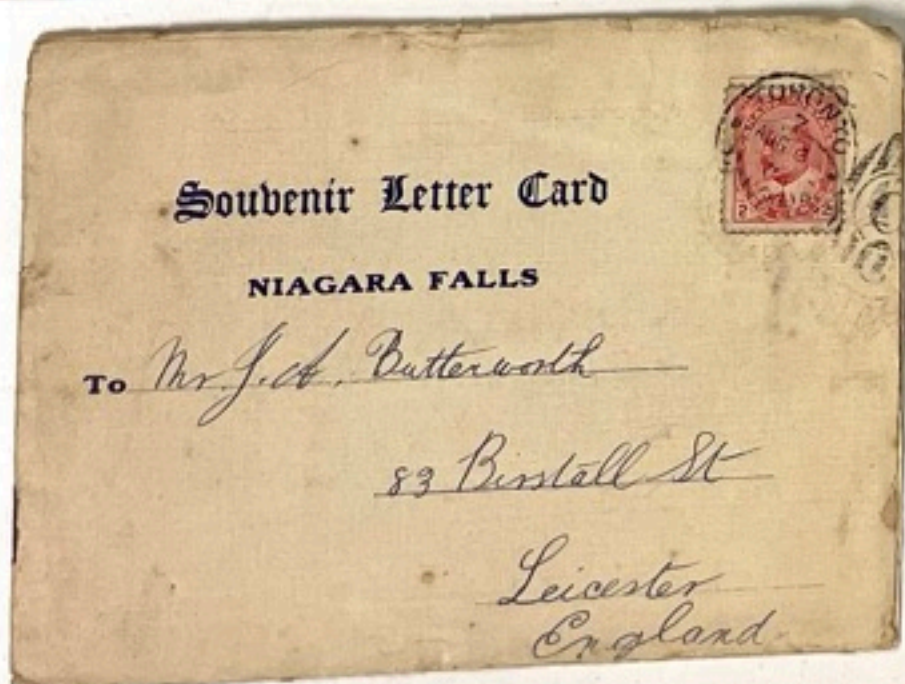 TORONTO
Souvenir Letter Card
NIAGARA FALLS
To Mr. J. A. Butterworth
83 Birstall St
Leicester
England